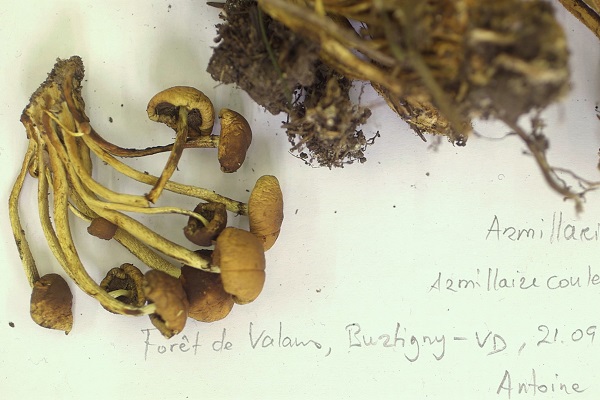 Armillari
Armillaire coule
Forêt de Valans, Burtigny - VD, 21.09
Antoine